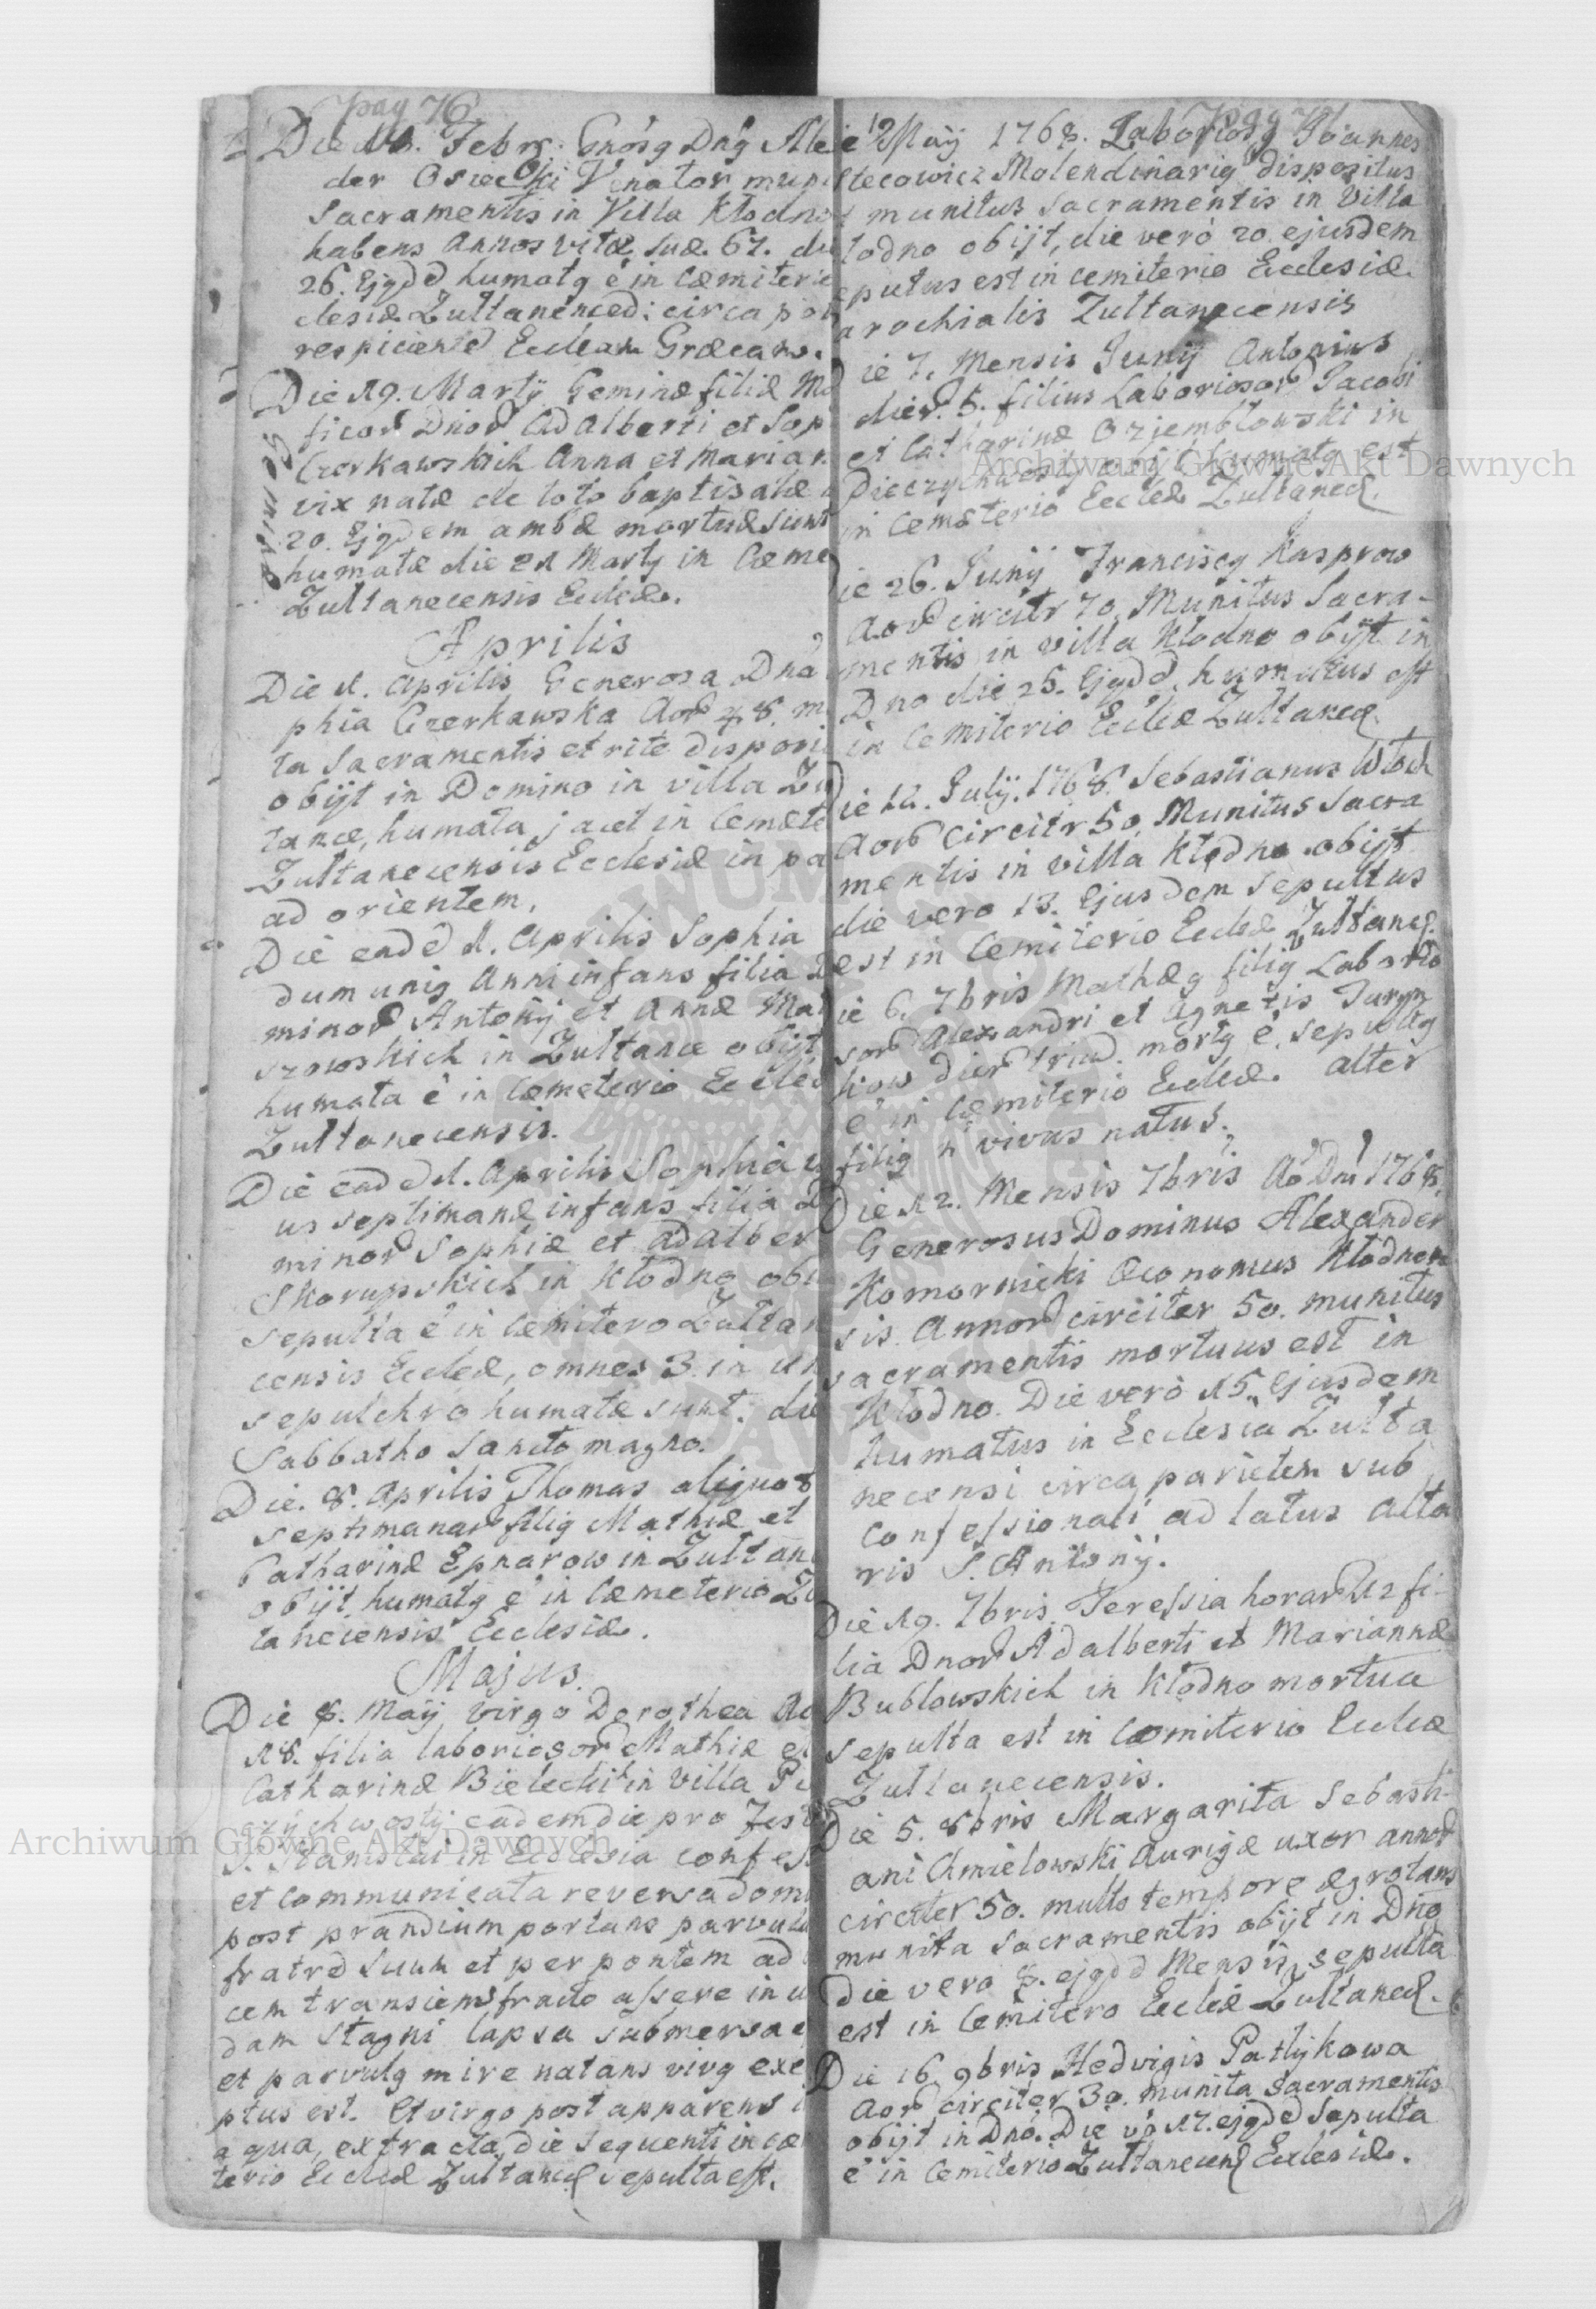 pag 76
Die Febr: Gnosg Dng Ale
der Osiecki Venator muni
Sacramentis in Villa Kłodno
habens Annos vitæ suæ. 67. die
26. Ejgdd humatg è in Cæmiterio
clesiæ Zułtanencd: circa por
respiciente Eccleam Græcam.
Die 19. Martij Geminæ filiæ Ma
ficor Dnor Adalberti et Sop
Czerkawskich Anna et Marian
vix natæ de loto baptisatæ
20. Ejgdem ambæ mortuæ sunt
humatæ die 21 Martij in Cæme
Zułtanecensis Eccleæ.
Aprilis
Die 1. Aprilis Generosa Dna
phia Czerkawska Aor 48. m
ta Sacramentis et rite disposi
obijt in Domino in villa Zu
tance, humata jacet in Cemæte
Zułtanecensis Ecclesiæ in pa
ad orientem.
Die eadd 1. Aprilis Sophia
dum unig Anni infans filia D
minor Antonij et Annæ Mat
szowskich in Zułtance obijt
humata è in Cæmeterio Eccles
Zułtanecensis.
Die eadd 1. Aprilis Sophia u
us septimanæ infans filia D
minor Sophiæ et Adalber
Skorupskich in Kłodno obi
sepulta è in Cæmitero Zułtan
censis Eccleæ, omnes 3. in un
sepulchro humatæ sunt. die
Sabbatho Sancto magno.
Die. 8. Aprilis Thomas aliquot
septimanar filig Mathiæ et
Catharinæ Epnarow in Zułtan
obijt humatg è in Cæmeterio Zu
tanecensis Ecclesiæ.
Majus.
Die 8. Maij virgo Dorothea Ao
18. filia laboriosor Mathiæ et
Catharinæ Bielechit in Villa Pe
czychwosty eademdie pro Festo
S. Stanislai in Ecclesia confes
et communicata reversa domu
post prandium portans parvulu
fratrd suum et per pontem ad
cem transiens fracto assere in u
dam stagni lapsa submersa e
et parvulg mire natans vivg exe
ptus est. Et virgo post apparens i
aqua, extracta, die sequenti in cæ
terio Eccleæ Zułtanec sepulta est.
pag 77
ie 19 Maij 1768. Laboriosg Joannes
stecowicz Molendinarig dispositus
munitus sacramentis in Villa
łodno obijt, die verò 20 ejusdem
putus est in cemiterio Ecclesiæ
arochialis Zułtanecensis
ie 7. Mensis Junij Antonius
dier. 5. filius Laboriosor Jacobi
et Catharinæ Oziembłowski in
Pieczychwosty obijt humatg est
in Cemæterio Eccleæ Zułtanec.
ie 26. Junij Franciscg Kasprow
Aor circitr 70. Munitus Sacra-
mentis in villa Kłodno obijt in
Dno die 25. Ejgdd humatus est
in Cemiterio Eccleæ Zułtanec.
Die 12. Julij. 1768. Sebastianus Włoch
Aor circitr 50. Munitus Sacra
mentis in villa Kłodno obijt
die vero 13. Ejusdem sepultus
est in Cemiterio Eccleæ Zułtanec.
ie 6. 7bris Mathæg filig Laborio
sor Alexandri et Agnetis Juryn
kow dier triu. mortg è, sepultg
è in Cæmiterio Eccleæ. alter
filig n vivus natus.
Die 12. Mensis 7bris Ao Dni 1768.
Generosus Dominus Alexander
Komornicki Oeconomus Kłodnen
sis. Annor circiter 50. munitus
sacramentis mortuus est in
Kłodno. Die verò 15. Ejusdem
humatus in Ecclesia Zułta
necensi circa parietem sub
confessionali ad latus Alta
ris S. Antonij.
Die 19. 7bris Teressia horar 12 fi-
lia Dnor Adalberti et Mariannæ
Bubłowskich in Kłodno mortua
sepulta est in Cæmiterio Eccleæ
Zułtanecensis.
Die 5. 8bris Margarita Sebasti-
ani Chmielowski Aurigæ uxor annor
circiter 50. multo tempore ægrotans
munita sacramentis obijt in Dno
die vero 8. ejgdd Mensis, sepulta
est in Cemitero Eccleæ Zułtanec.
Die 16 9bris Hedvigis Patlykowa
Aor circiter 30. munita Sacramentis
obijt in Dno. Die vo 17. ejgdd sepulta
è in Cemiterio Zułtanecens Ecclesiæ.
Archiwum Główne Akt Dawnych
Archiwum Główne Akt Dawnych